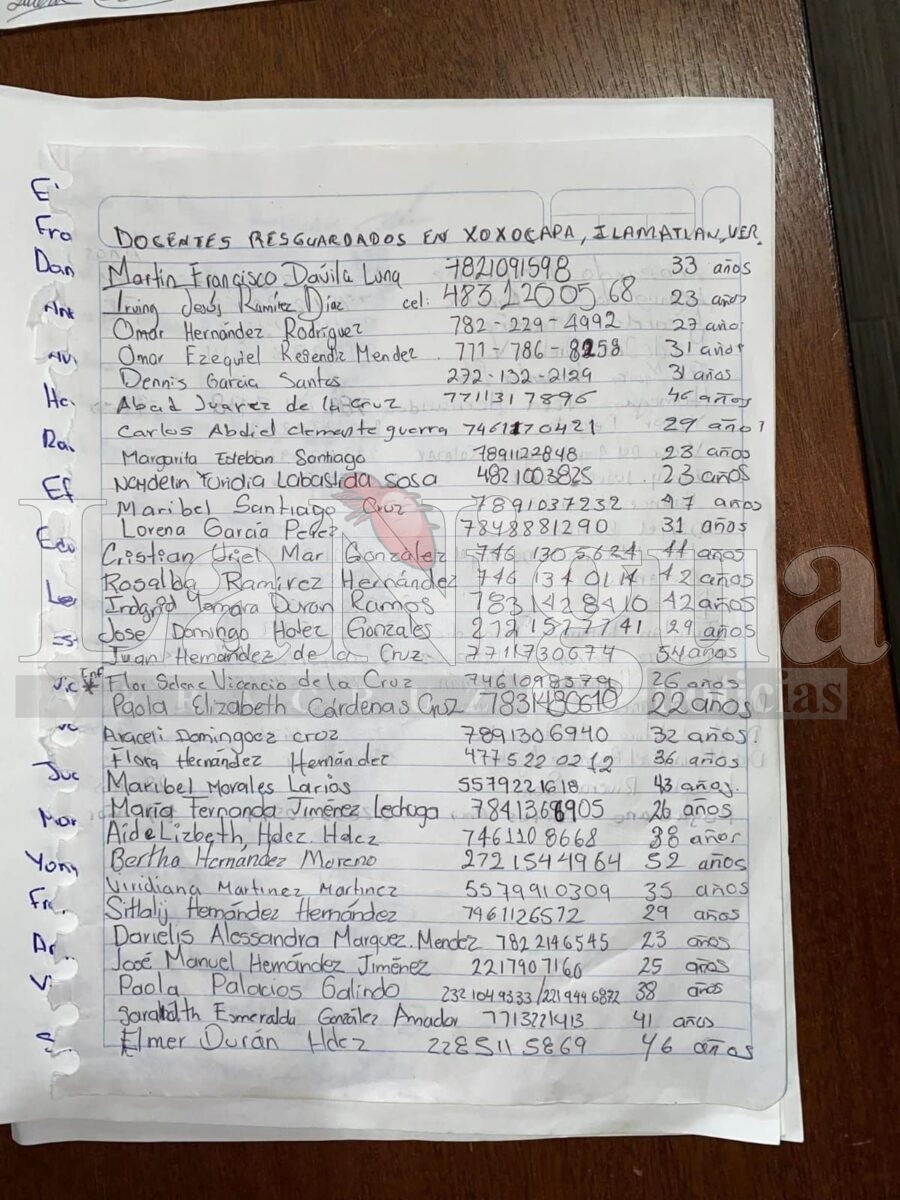 DOCENTES RESGUARDADOS EN XOXOCAPA, ILAMATLAN, VER.
Martin Francisco Dávila Luna 7821091598 33 años
Irving Jesús Ramírez Díaz cel: 483 1200568 23 años
Omar Hernández Rodríguez 782-229-4992 27 año
Omar Ezequiel Resendiz Mendez 771-786-8258 31 años
Dennis Garcia Santos 272-132-2129 31 años
Abad Juarez de la cruz 7711317896 46 años
Carlos Abdiel clemente guerra 7461170421 29 años
Margarita Esteban Santiago 7891122848 23 años
Naydelin Yuridia Labastida Sosa 4821003825 23 años
Maribel Santiago Cruz 7891037232 47 años
Lorena García Pérez 7848881290 31 años
Cristian Uriel Mar González 746 1305624 44 años
Rosalba Ramírez Hernández 746 1340114 42 años
Indgrid Yemara Duran Ramos 783 1428410 42 años
Jose Domingo Hdez Gonzales 2721577741 29 años
Juan Hernández de la Cruz 7711730674 54 años
Enf
* Flor Selene Vicencio de la Cruz 7461098379 26 años
Paola Elizabeth Cárdenas Cruz 7831480610 22 años
Araceli Dominguez cruz 7891306940 32 años
Flora Hernández Hernández 4775220212 36 años
Maribel Morales Larios 5579221618 43 años.
María Fernanda Jiménez Lechuga 7841368905 26 años
Aide Lizbeth, Hdez. Hdez 7461108668 38 años
Bertha Hernández Moreno 2721544964 52 años
Viridiana Martinez Martinez 5579910309 35 años
Sitlalij Hernández Hernández 7461126572 29 años
Darielis Alessandra Marquez. Mendez 7822146545 23 años
José Manuel Hernández Jiménez 2217907160 25 años
Paola Palacios Galindo 2321049333/2219446872 38 años
Esmeralda González Amador 7713221413 41 años
Elmer Durán Hdez 2285115869 46 años
E.
Fra
Dan
Ra
Ef
Edu
Le
Vic
Juc
Mar
Yom
Fr
La Noria
VERACRUZ noticias